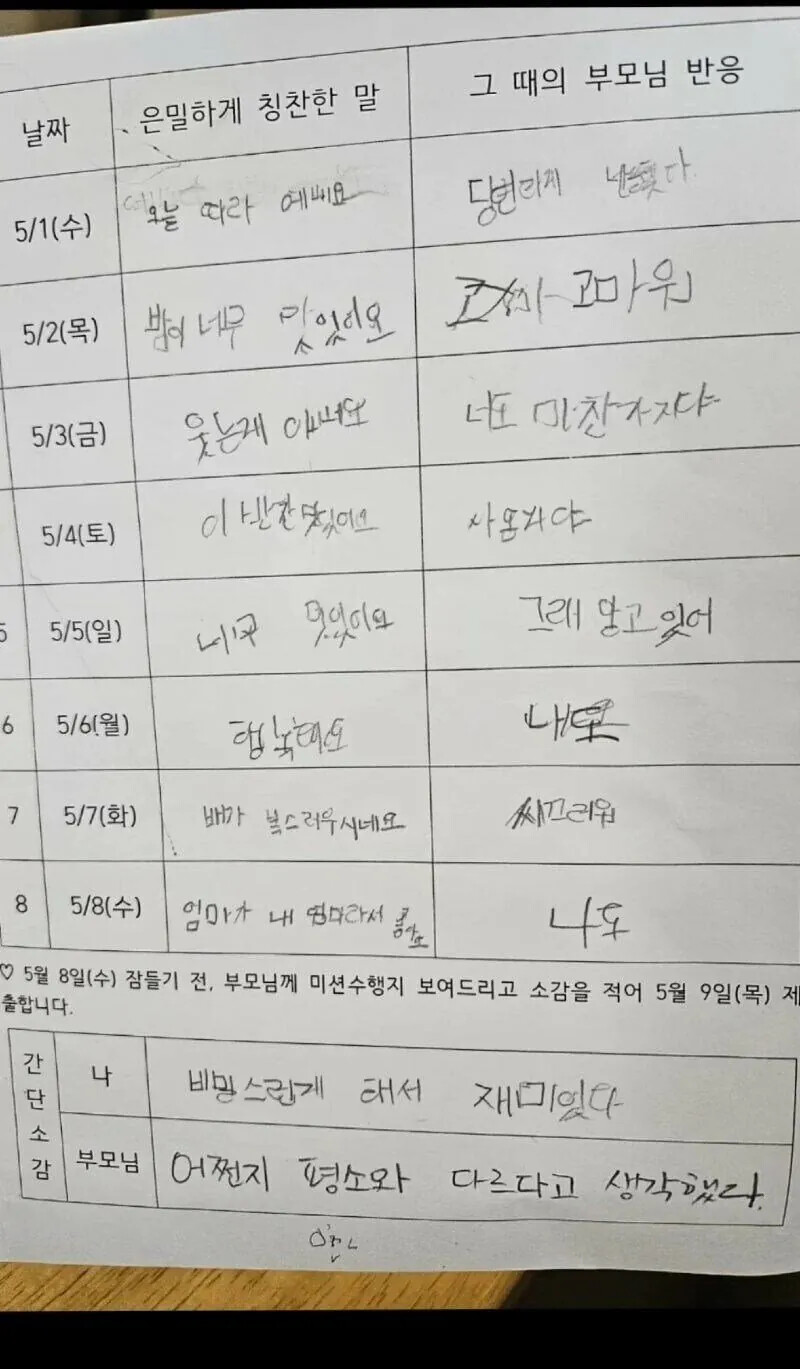 날짜 은밀하게 칭찬한 말 그 때의 부모님 반응
5/1(수) 오늘 따라 예뻐요
5/2(목) 밥이 너무 맛있어요 고마워
5/3(금) 웃는게 너도 마찬가지다
5/4(토) 이 반찬 맛있어요
5 5/5(일) 너무 그래 알고 있어
6 5/6(월) 행복해요
7 5/7(화) 배가 복스러우시네요 씨끄러워
8 5/8(수) 엄마가 내 엄마라서 좋아요 나도
♡ 5월 8일(수) 잠들기 전, 부모님께 미션수행지 보여드리고 소감을 적어 5월 9일(목) 제
출합니다.
간단소감
나 비밍스럽게 해서 재미있다
부모님 어쩐지 평소와 다르다고 생각했다.